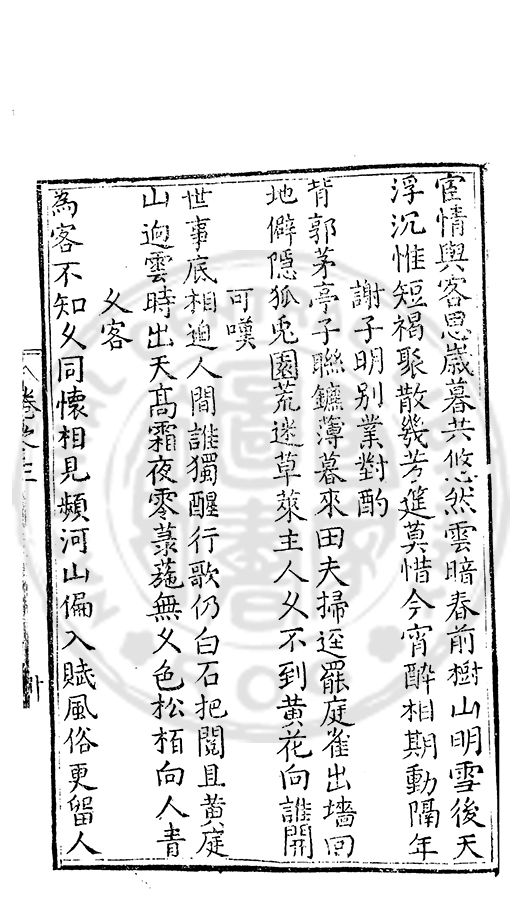 宦情與客思歲暮共悠然雲暗春前樹山明雪後天
浮沉惟短褐聚散幾芳筵莫惜今宵醉相期動隔年
謝子明別業對酌
背郭茅亭子聯鑣薄暮來田夫掃逕罷庭雀出墻回
地僻隱狐兎園荒迷草萊主人久不到黄花向誰開
可嘆
世事底相迫人間誰獨醒行歌仍白石把閱且黄庭
山逈雲時出天髙霜夜零菉葹無久色松栢向人青
久客
為客不知久同懷相見頻河山偏入賦風俗更留人
卷之三